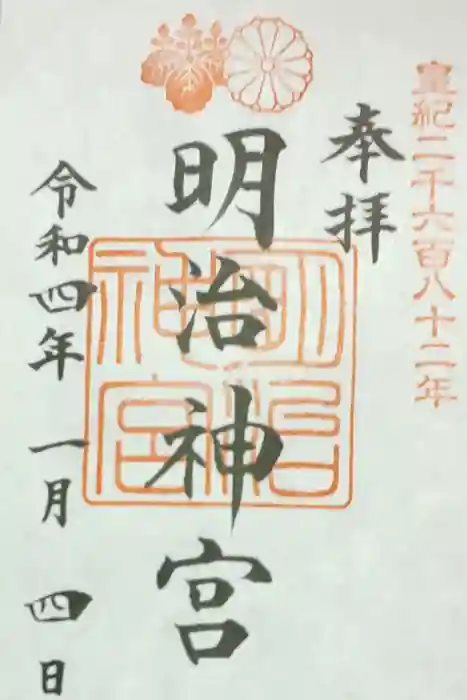 皇紀二千六百八十二年
奉拝
明治神宮
明治
神宮
令和四年一月四日